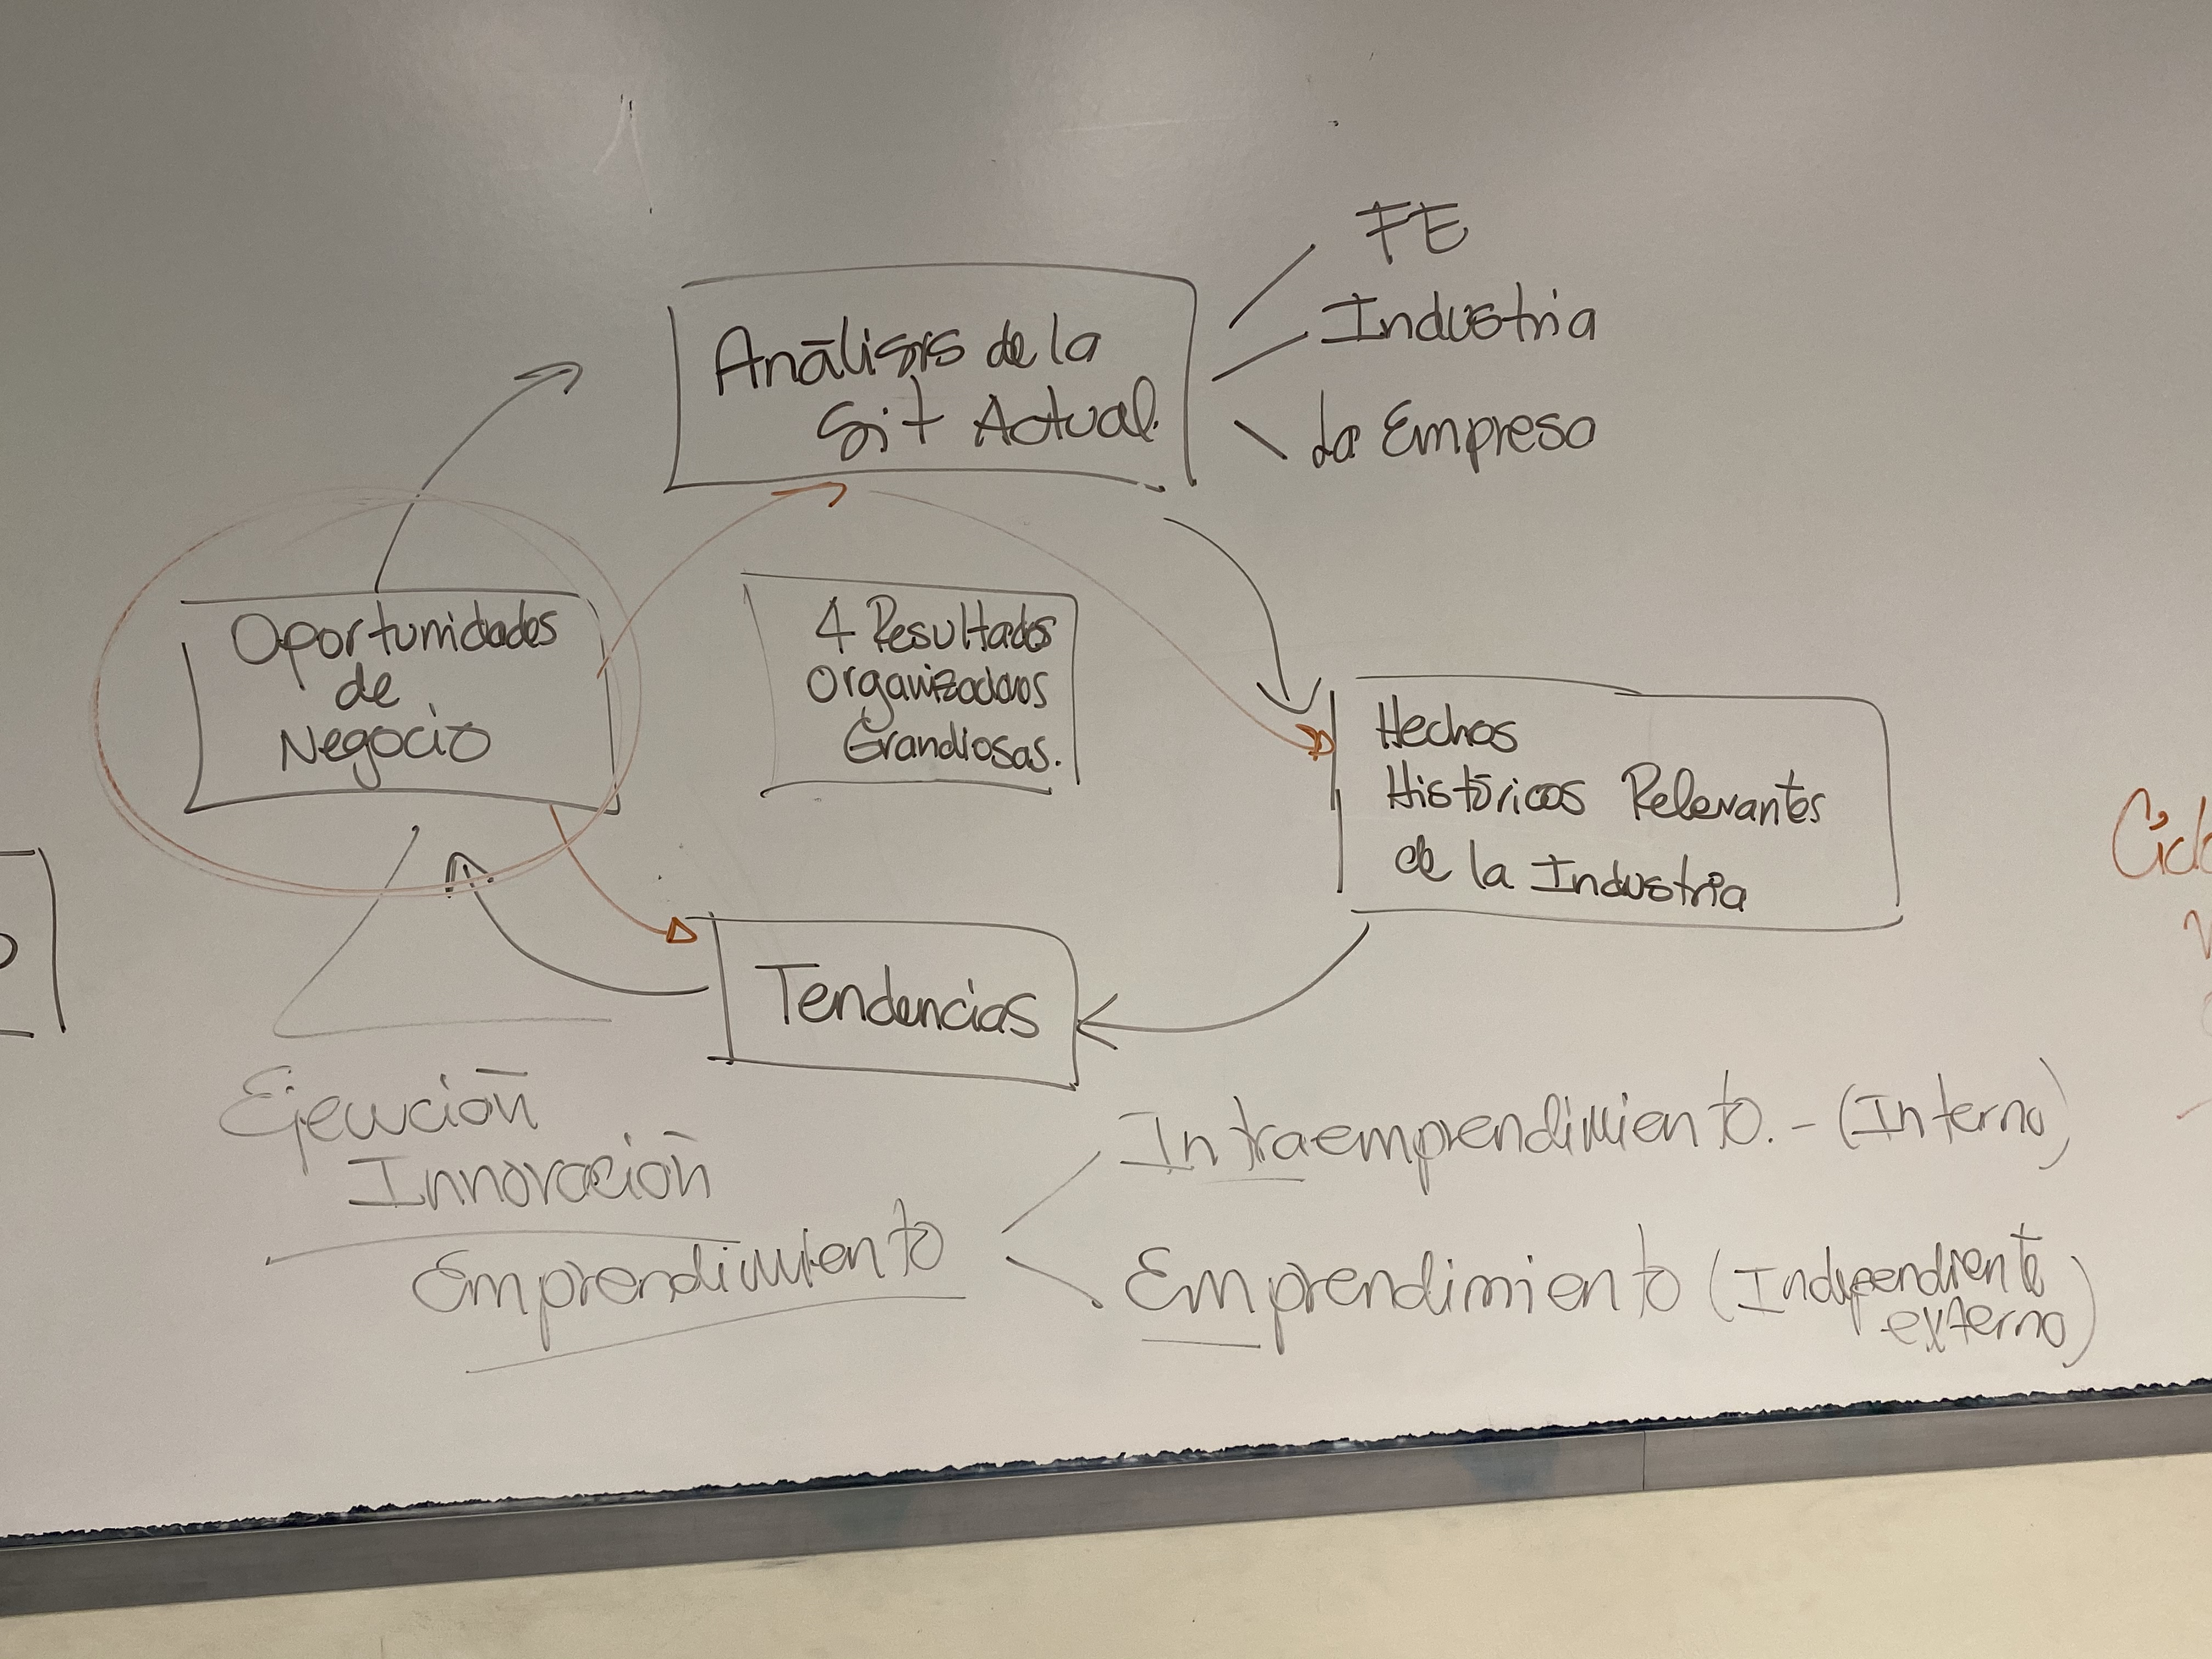 FE
Industria
La Empresa
Análisis de la
Sit Actual.
Oportunidades
de
Negocio
4 Resultados
Organizadaos
Grandiosas.
Hechos
Históricos Relevantes
de la Industria
Tendencias
Ejecución
Innovación
Emprendimiento
Intraemprendimiento. - (Interno)
Emprendimiento (Independiente
externo)